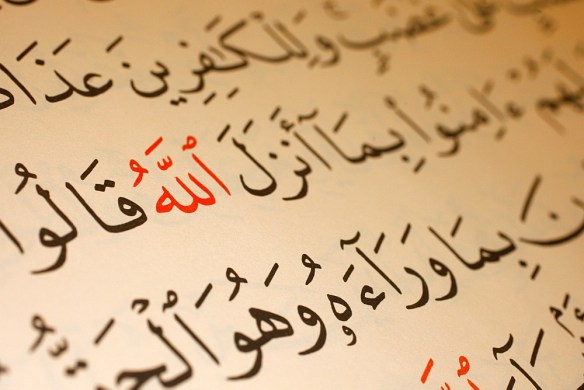 غَضَبٍ وَلِلْكَٰفِرِينَ عَذَا
لَهُمْ ءَامِنُوا۟ بِمَآ أَنزَلَ ٱللَّهُ قَالُوا۟
نَ بِمَا وَرَآءَهُۥ وَهُوَ ٱلْحَقُّ